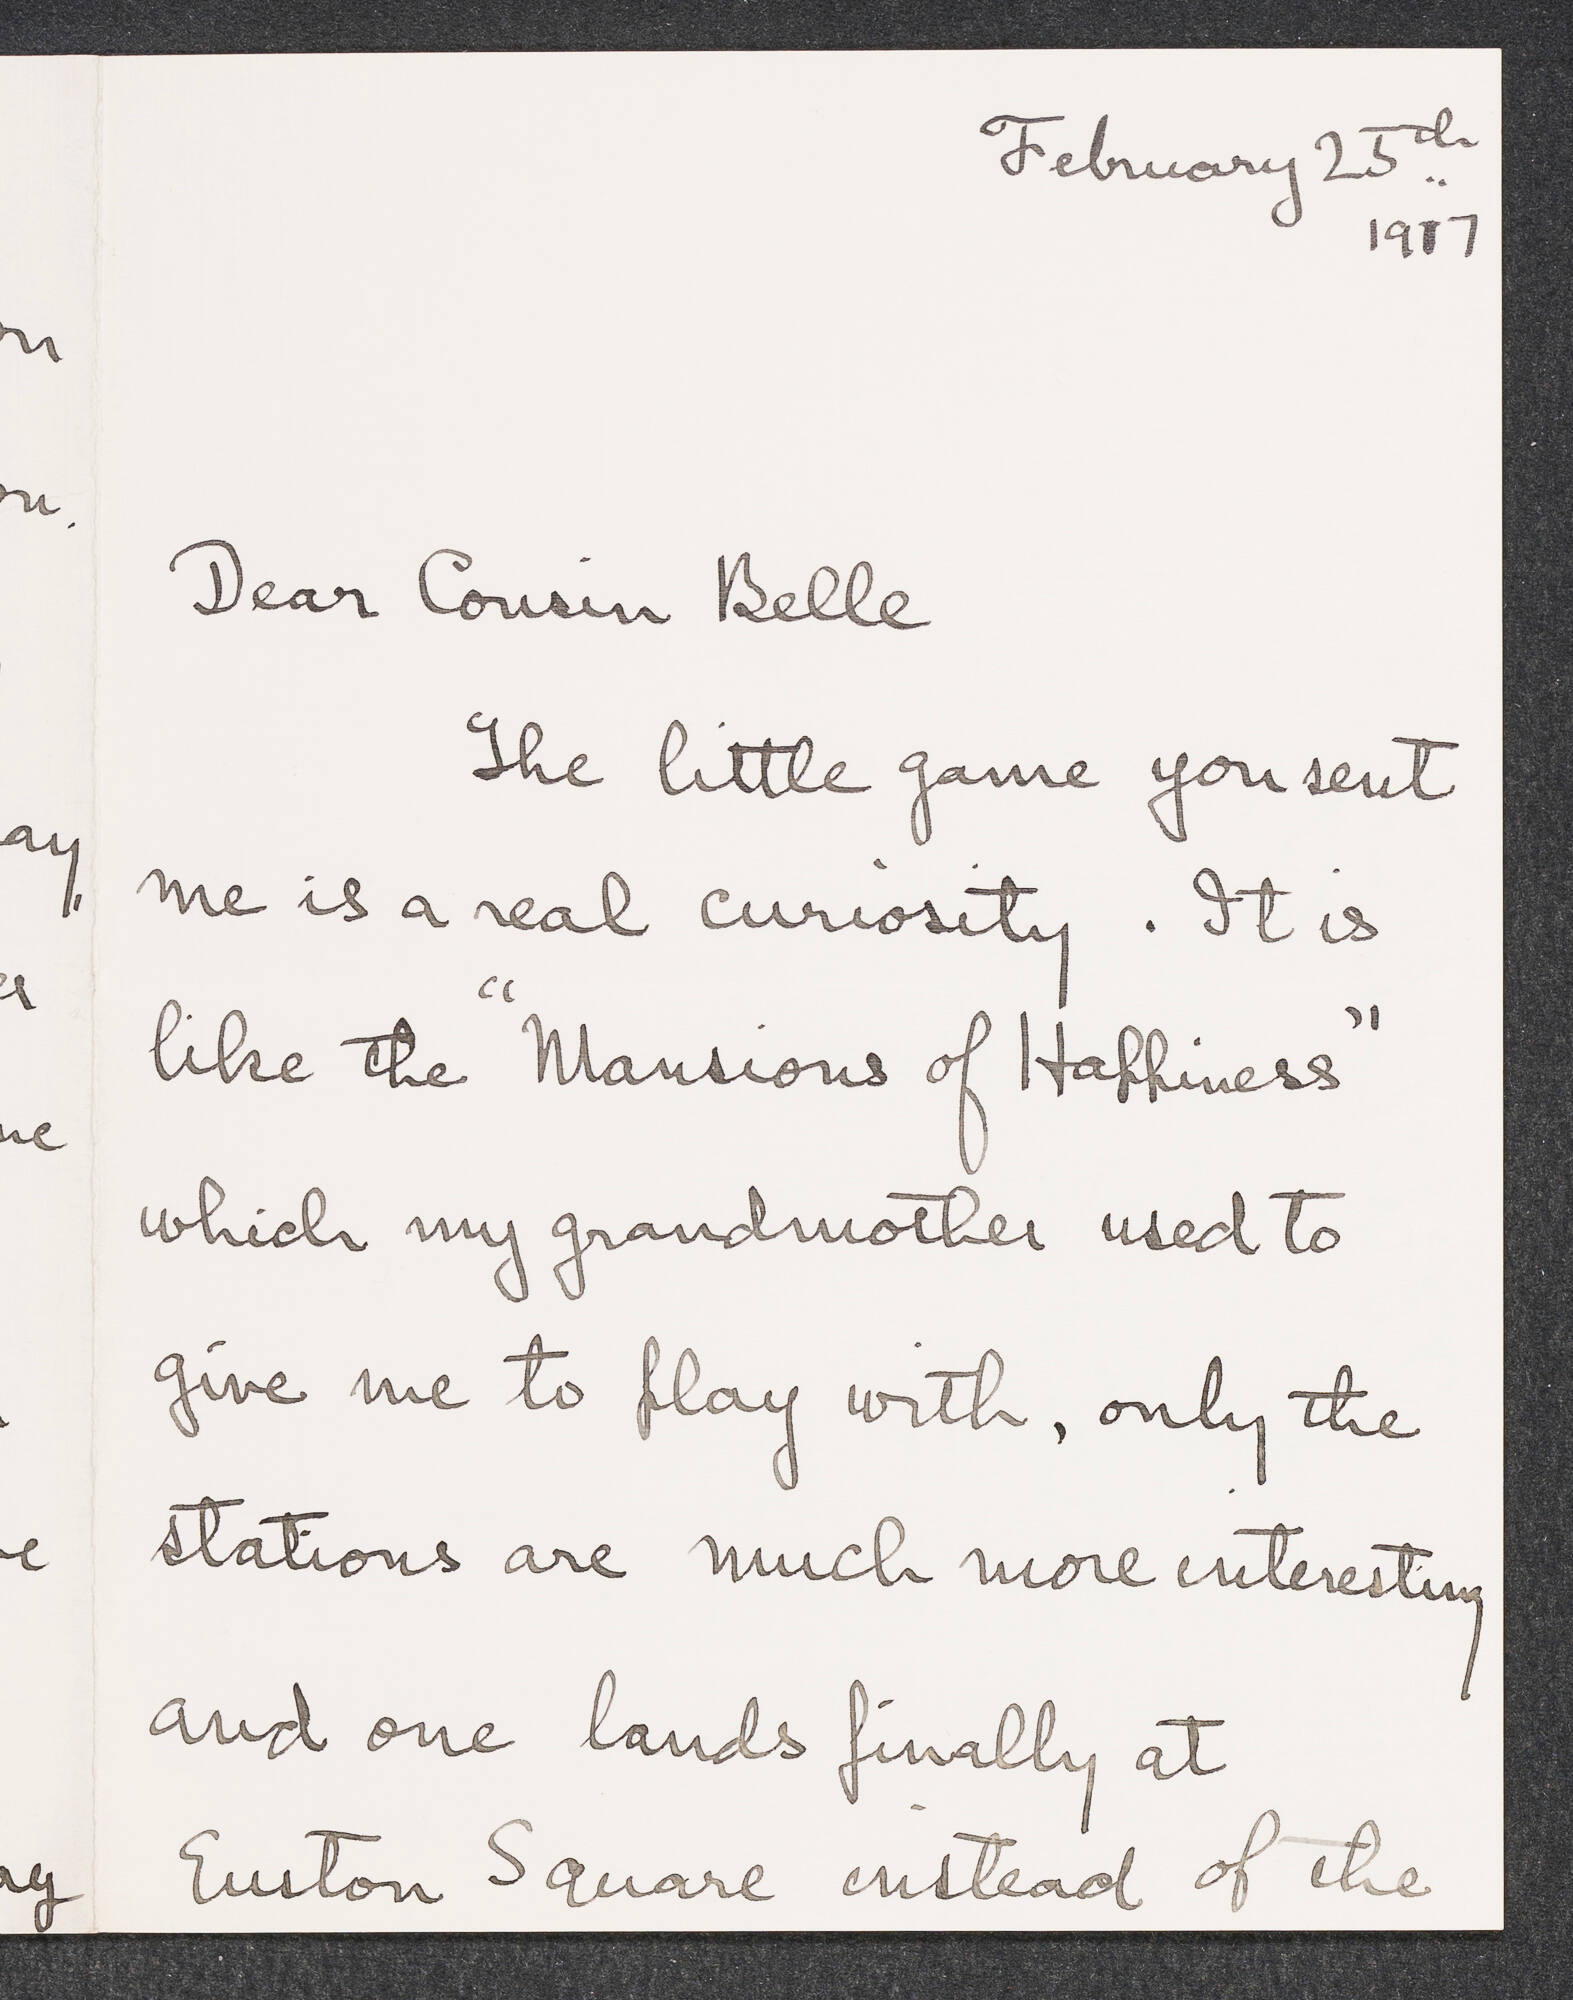 February 25th
1917
Dear Cousin Belle
The little game you sent
me is a real curiosity. It is
like the "Mansions of Happiness"
which my grandmother used to
give me to play with, only the
stations are much more interesting
and one lands finally at
Euston Square instead of the